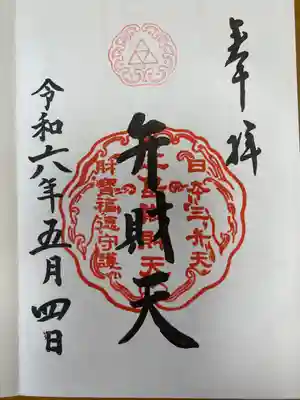 奉拝
弁財天
日本三弁天
財寶福徳守護
令和六年五月四日